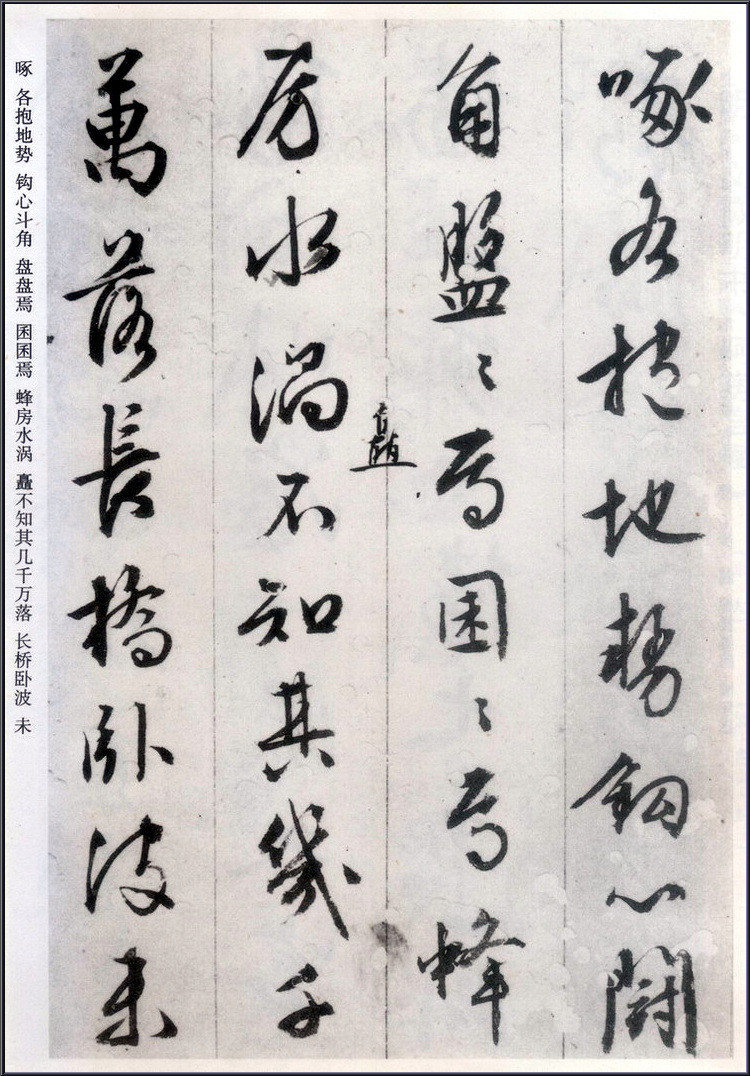 啄各抱地勢鈎心闘
角盤〻焉囷〻焉蜂
矗
房水渦不知其幾千
萬落長橋卧波未
啄 各抱地势 钩心斗角 盘盘焉 囷囷焉 蜂房水涡 矗不知其几千万落 长桥卧波 未